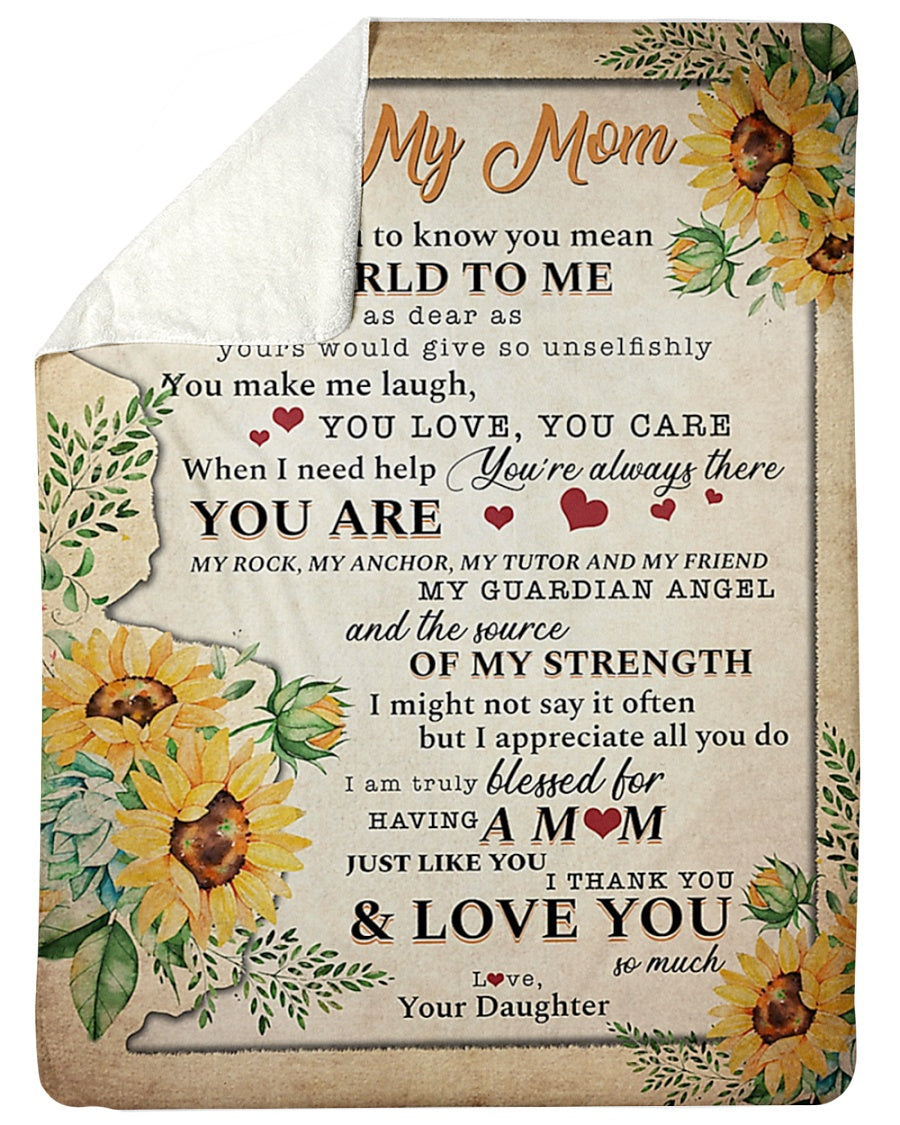 My Mom
to know you mean
RLD TO ME
as dear as
yours would give so unselfishly
You make me laugh,
YOU LOVE, YOU CARE
When I need help You're always there
YOU ARE
MY ROCK, MY ANCHOR, MY TUTOR AND MY FRIEND
MY GUARDIAN ANGEL
and the source
OF MY STRENGTH
I might not say it often
but I appreciate all you do
I am truly blessed for
HAVING A M♥M
JUST LIKE YOU
I THANK YOU
& LOVE YOU
so much
L♥ve,
Your Daughter